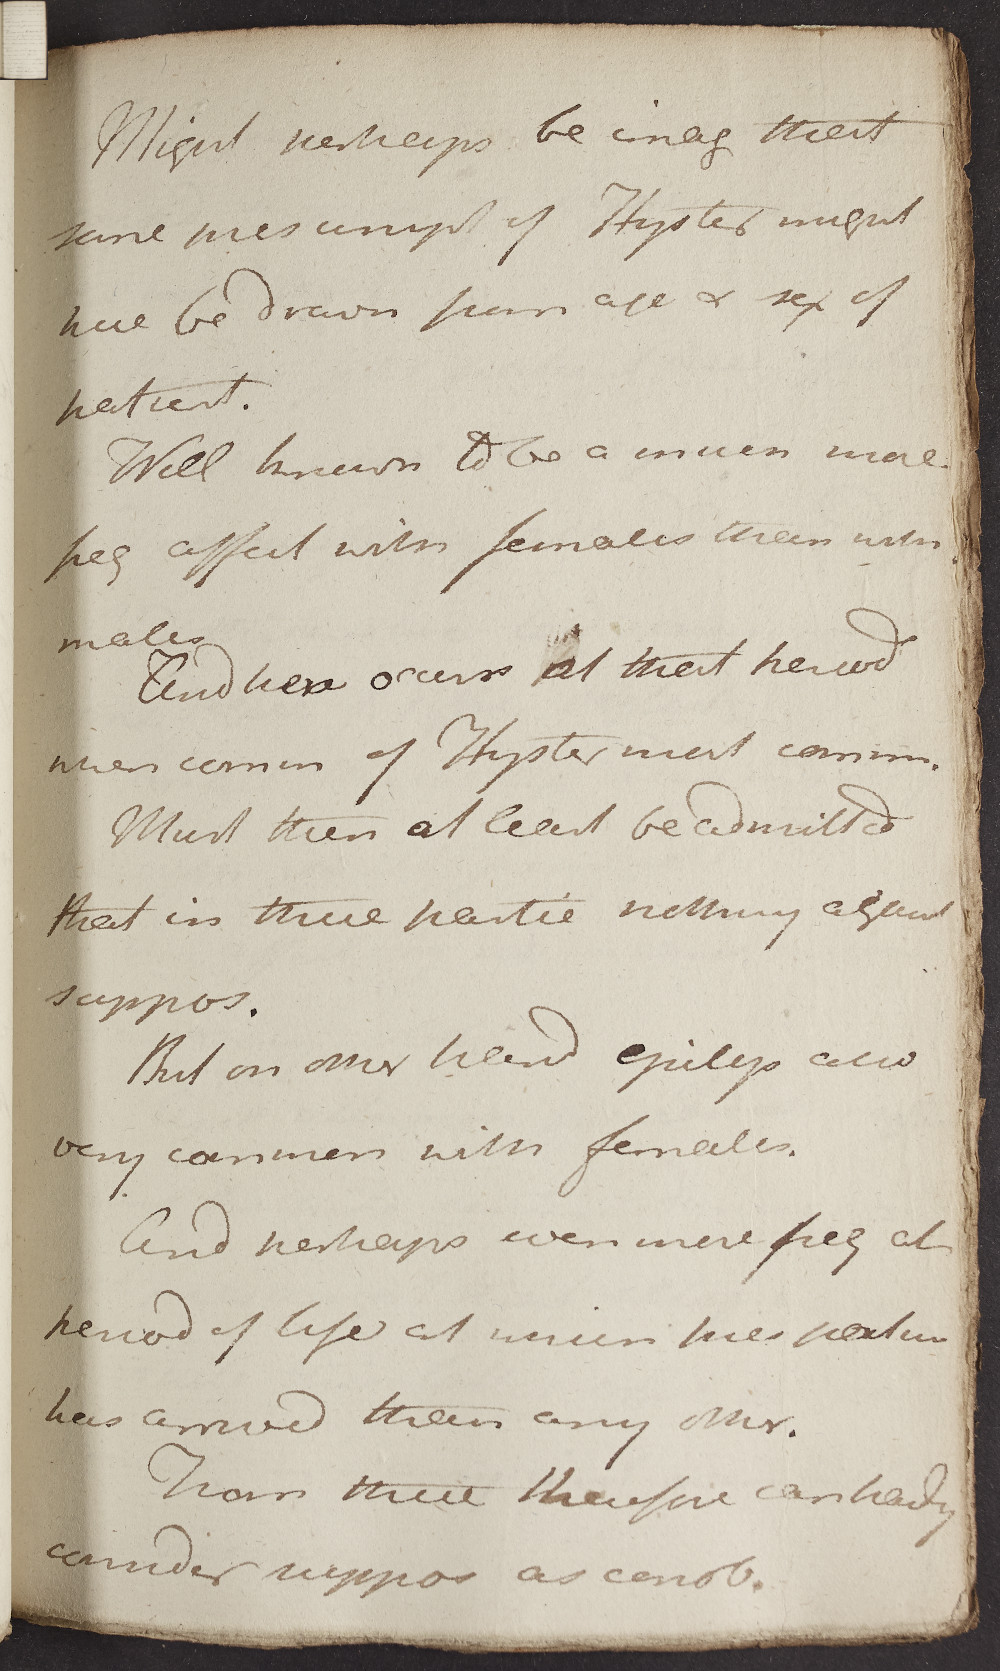 Might perhaps be imag that
some presumpt of Hyster might
here be drawn from age & sex of
patient.
Well known to be a much more
freq affect with females than with
males
And here occurs at that period
when comm of Hyster most comm.
Must then at least be admitted
that in these partic nothing against
suppos.
But on other hand epileps also
very common with females.
And perhaps even more freq at
period of life at which pres patien
has arrived than any other.
From these therefore can hardly
consider suppos as conob.